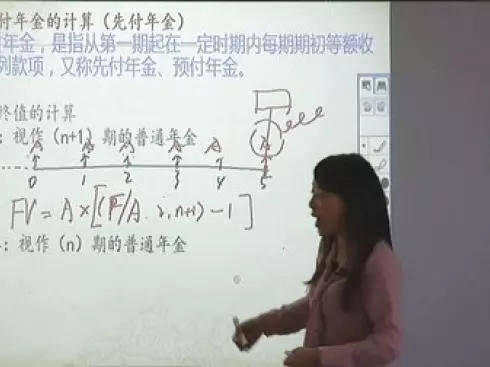 付年金的计算（先付年金）
年金，是指从第一期起在一定时期内每期期初等额收
列款项，又称先付年金、预付年金。
终值的计算
：视作（n+1）期的普通年金
A A A A A A
0 1 2 3 4 5
FV = A × [(F/A. i, n+1) - 1]
：视作（n）期的普通年金